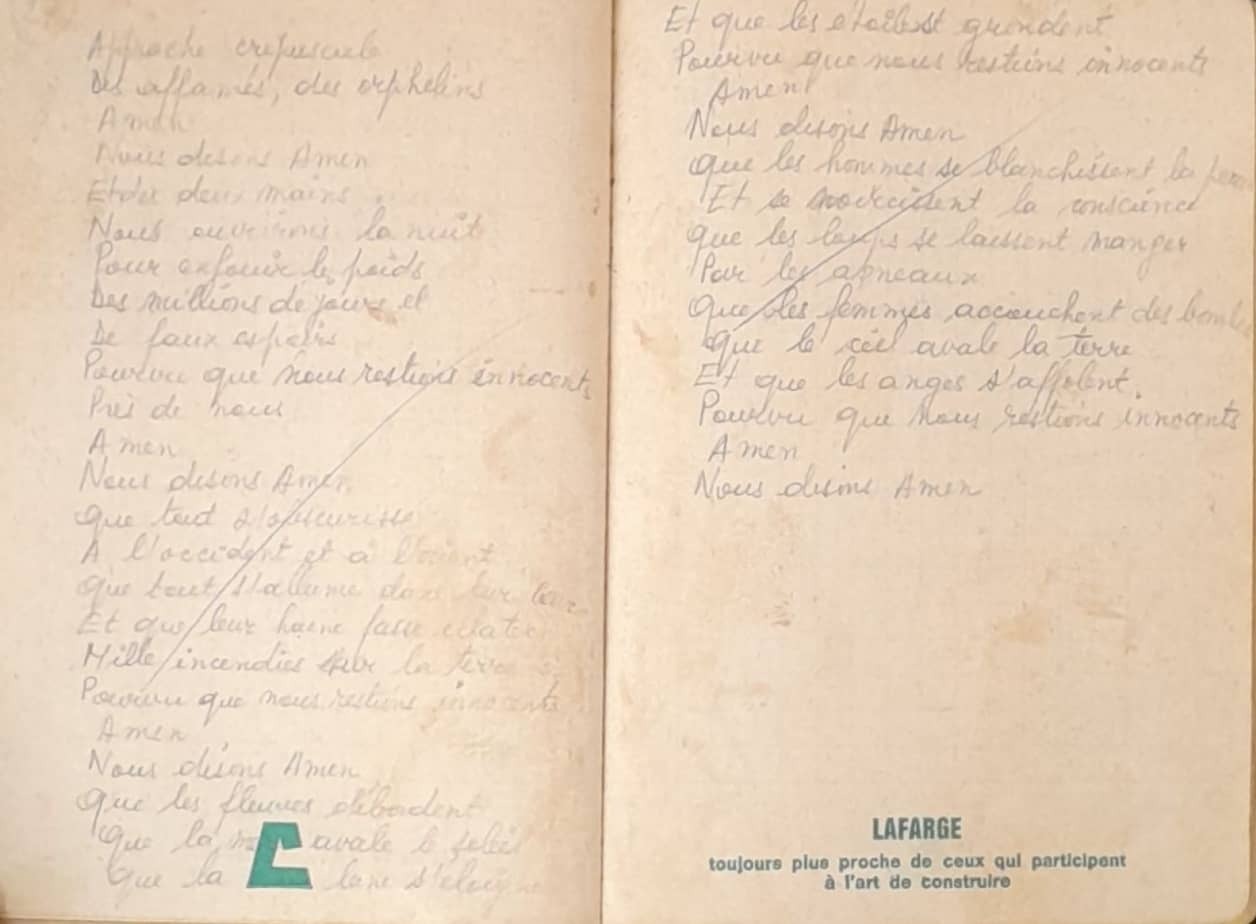 Approche crepuscule
Des affamés, des orphelins
Amen
Nous disons Amen
Et des deux mains
Nous ouvrirons la nuit
Pour enfouir le poids
Des millions de jours et
De faux espoirs
Pourvu que nous restions innocents
Près de nous
Amen
Nous disons Amen
Que tout s'obscurisse
A l'occident et à l'orient
Que tout s'allume dans leur
Et que leur haine fasse éclater
Mille incendies sur la terre
Pourvu que nous restions innocents
Amen
Nous disons Amen
Que les fleuves débordent
Que la avale le soleil
Que la lune s'eloigne
Et que les étoiles grondent
Pourvu que nous restions innocents
Amen
Nous disons Amen
Que les hommes se blanchissent la
Et se noircissent la conscience
Que les loups se laissent manger
Par les agneaux
Que les femmes accouchent des bombes
Que le ciel avale la terre
Et que les anges s'affolent.
Pourvu que nous restions innocents
Amen
Nous disons Amen
LAFARGE
toujours plus proche de ceux qui participent
à l'art de construire